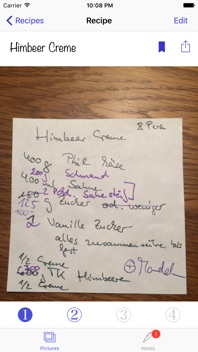 Carrier
10:08 PM
Recipes
Recipe
Edit
Himbeer Creme
8 Pers
Himbeer Creme
400g Phil Käse
200g Schmand
400 ml Sahne
2 Päck. Sahnesteif
125 g Zucker od. weniger
2 Vanille Zucker
alles zusammen rühren bis
fest
1/2 Creme
TK Himbeeren
⊕ Mandeln
1/2 Creme
1
2
3
4
Pictures
Notes